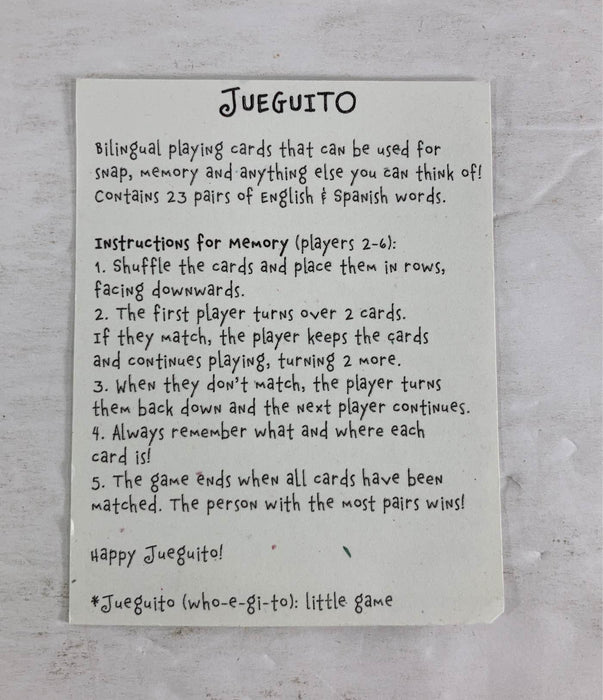 JUEGUITO
Bilingual playing cards that can be used for
snap, memory and anything else you can think of!
Contains 23 pairs of English & Spanish words.
Instructions for Memory (players 2-6):
1. Shuffle the cards and place them in rows,
facing downwards.
2. The first player turns over 2 cards.
If they match, the player keeps the cards
and continues playing, turning 2 more.
3. When they don't match, the player turns
them back down and the next player continues.
4. Always remember what and where each
card is!
5. The game ends when all cards have been
matched. The person with the most pairs wins!
Happy Jueguito!
*Jueguito (who-e-gi-to): little game